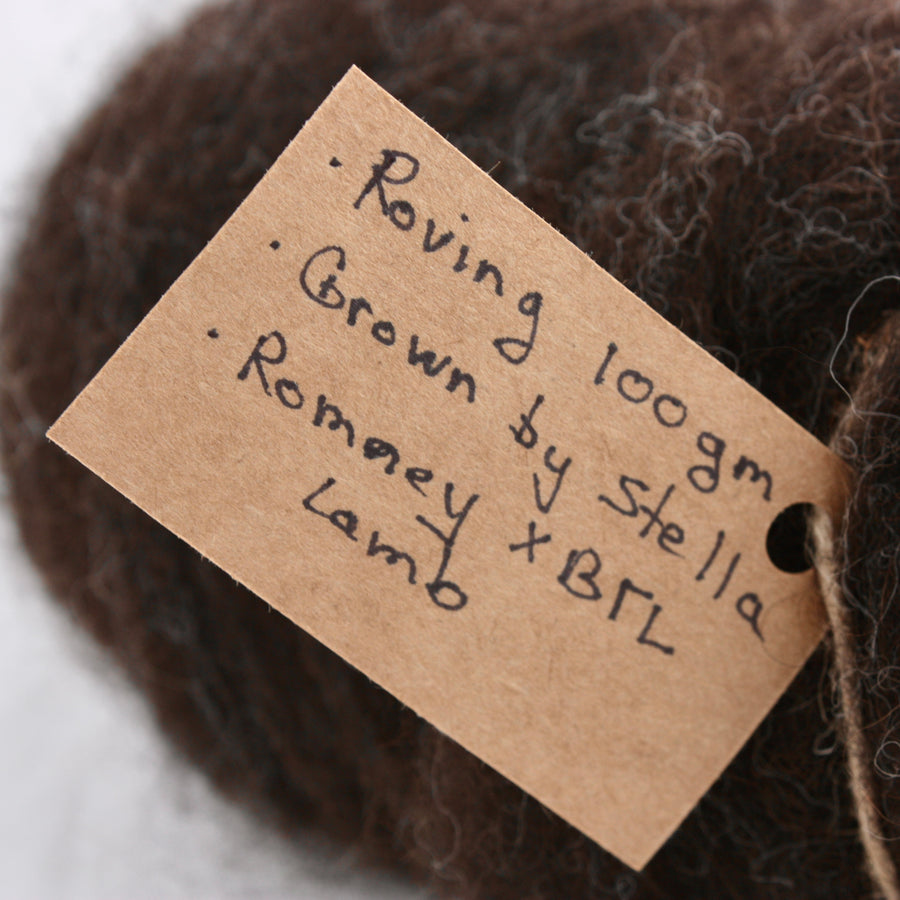 · Roving 100gm
· Grown by Stella
· Romney x BFL
Lamb